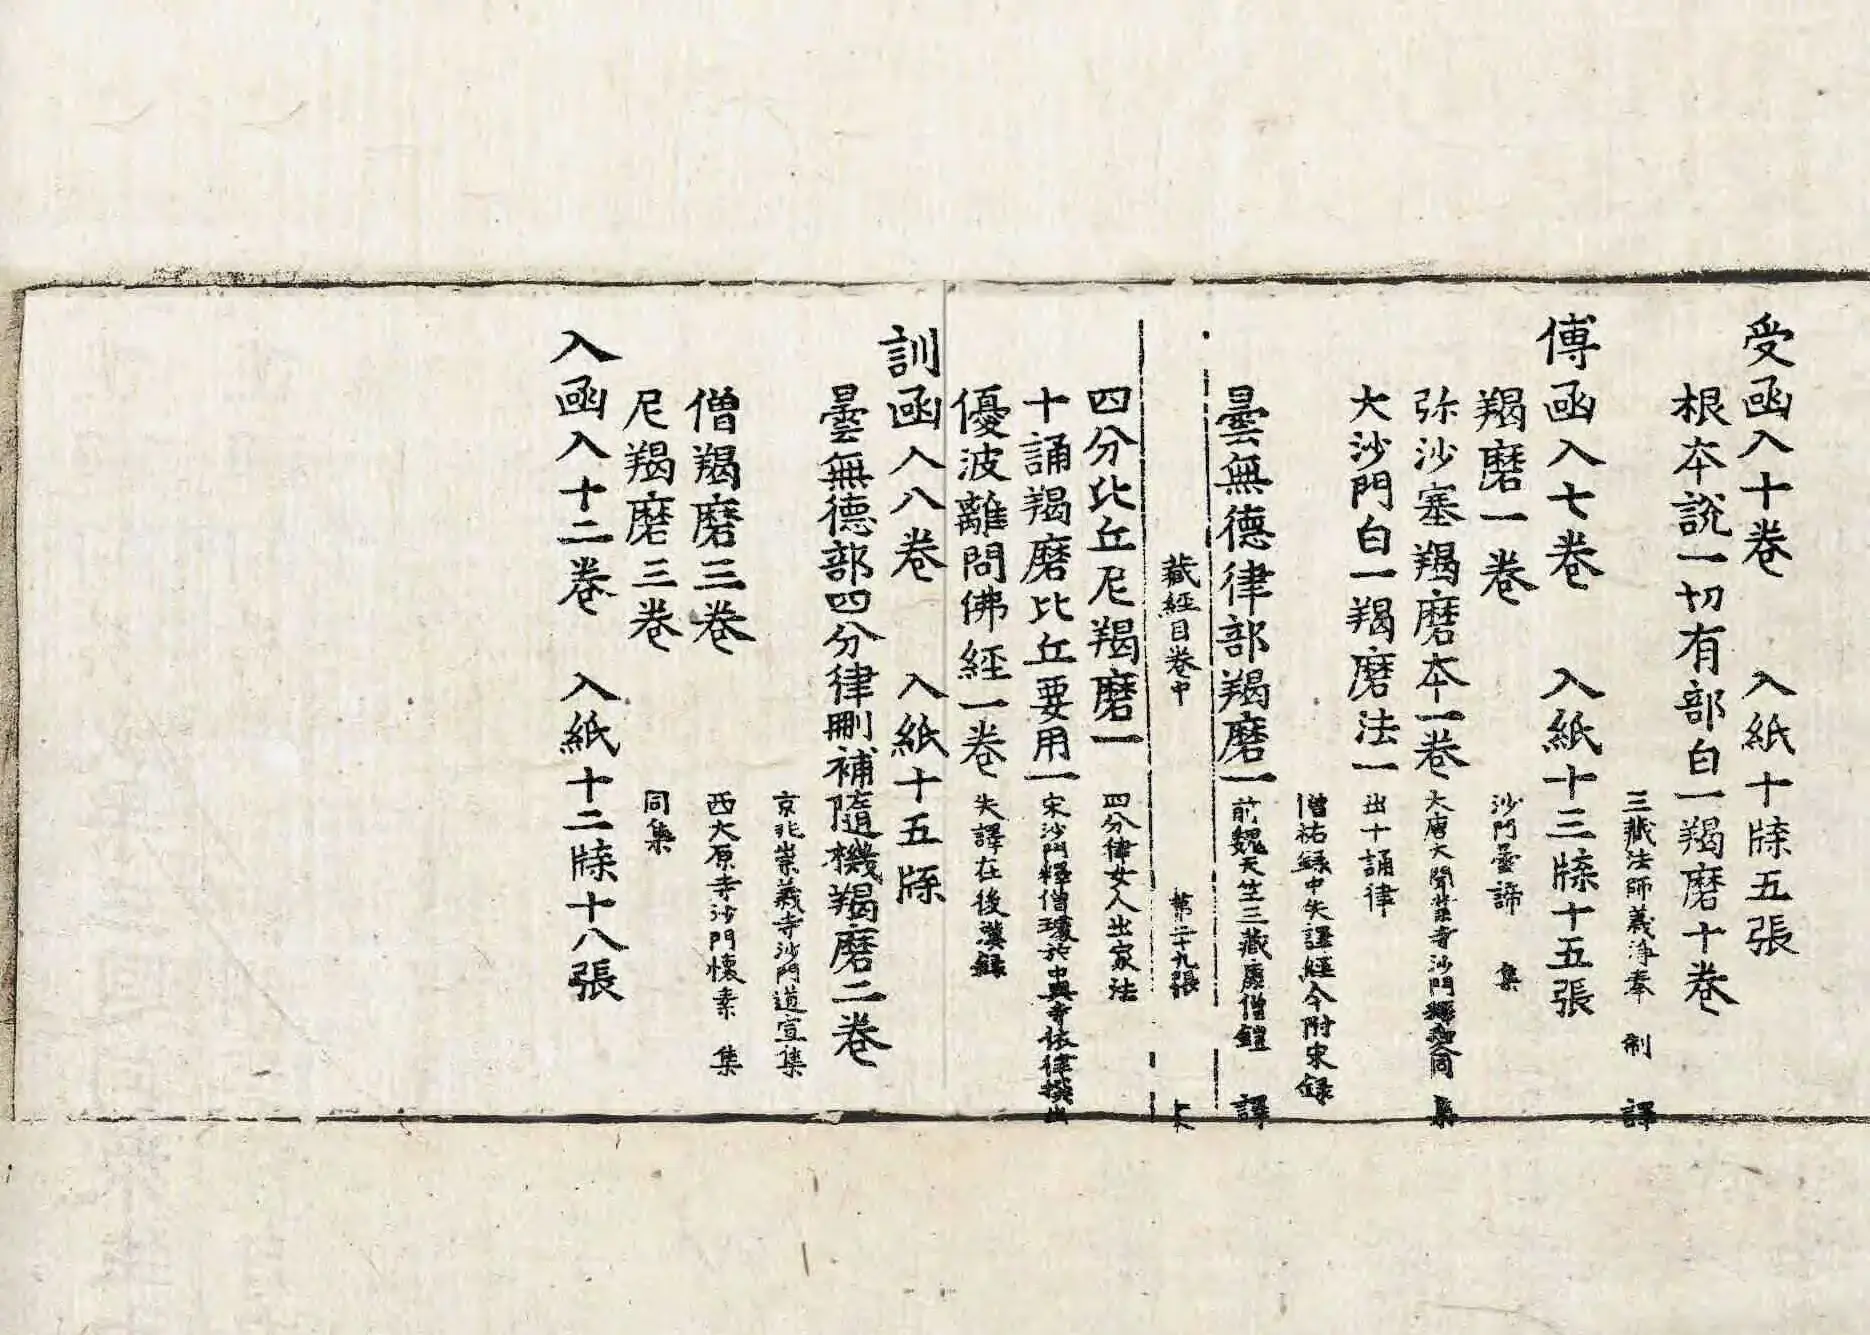 受函入十卷　入紙十牒五張
根本說一切有部白一羯磨十卷
三藏法師義淨奉　制　譯
傅函入七卷　入紙十三牒十五張
羯磨一卷　沙門曇諦　集
弥沙塞羯磨本一卷　大唐大開業寺沙門釋愛同　集
大沙門白一羯磨法一　出十誦律
僧祐録中失譯經今附宋録
曇無德律部羯磨一　前魏天竺三藏康僧鎧　譯
藏經目卷中　第二十九張
四分比丘尼羯磨一　四分律女人出家法
十誦羯磨比丘要用一　宋沙門釋僧璩於中興寺依律撰出
優波離問佛經一卷　失譯在後漢録
訓函入八卷　入紙十五牒
曇無德部四分律刪補隨機羯磨二卷
京兆崇義寺沙門道宣集
僧羯磨三卷　西大原寺沙門懷素　集
尼羯磨三卷　同集
入函入十二卷　入紙十二牒十八張